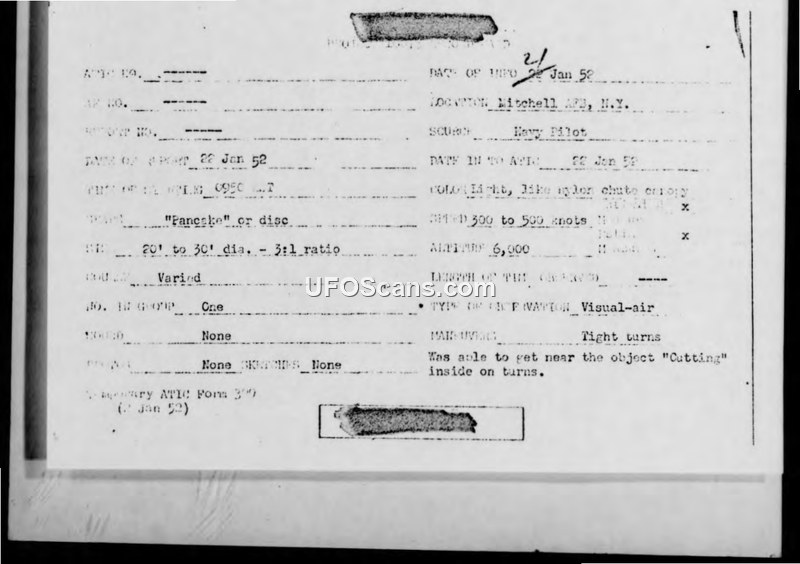 21
ATIC NO. ------ DATE OF INFO 22 Jan 52
AF NO. ------ LOCATION Mitchell AFB, N.Y.
REPORT NO. ----- SOURCE Navy Pilot
DATE OF REPORT 22 Jan 52 DATE IN TO ATIC 22 Jan 52
TIME OF SIGHTING 0950 COLOR Light, like nylon chute canopy
x
SHAPE "Pancake" or disc SPEED 300 to 500 knots
x
SIZE 20' to 30' dia. - 3:1 ratio ALTITUDE 6,000
COURSE Varied LENGTH OF TIME OBSERVED ----
UFOScans.com
NO. IN GROUP One TYPE OF OBSERVATION Visual-air
SOUND None MANEUVERS Tight turns
PHOTOS None SKETCHES None Was able to get near the object "Cutting"
inside on turns.
Temporary ATIC Form
(2 Jan 52)